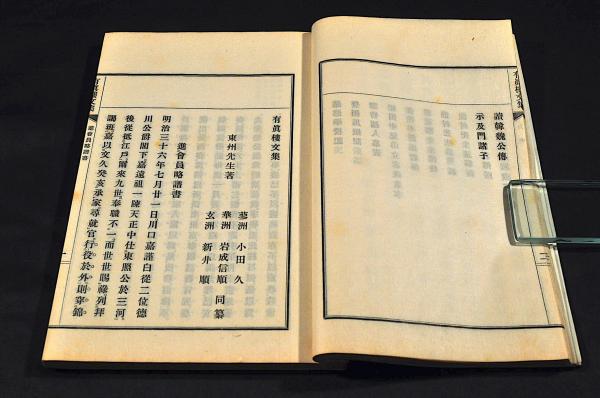 有眞樓文集
讀韓魏公傳
示及門諸子
有眞樓文集
東州先生著
蓼洲 小田 久
華洲 岩成信順 同纂
玄洲 新井 順
進會員略譜書
明治三十六年七月廿一日川口嘉謹白從二位德
川公爵閣下嘉遠祖一陳天正中仕東照公於三河
後從抵江戶爾來九世奉職不一而世世賜祿列拜
謁班嘉以文久癸亥承家尋就官行役於外則穿錦
進會員略譜書
一